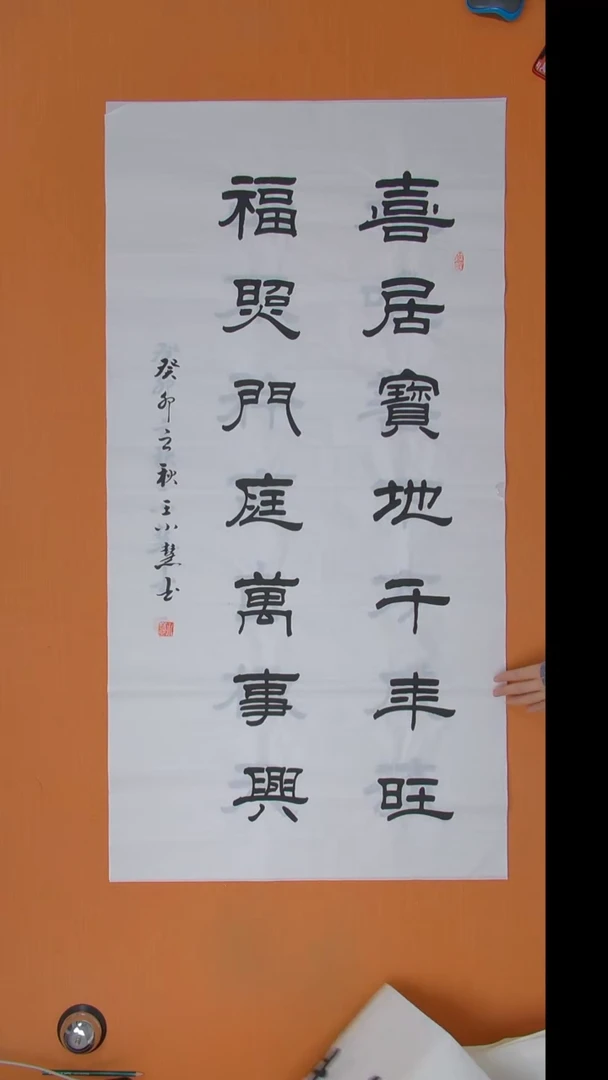 喜居寶地千年旺
福照門庭萬事興
癸卯立秋王小慧书